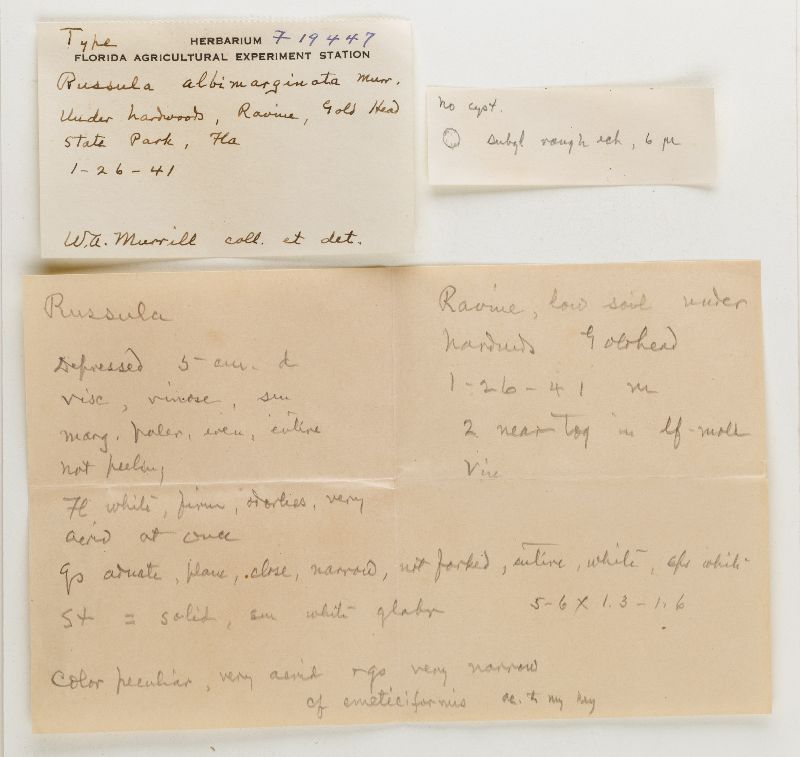 Type HERBARIUM F 19447
FLORIDA AGRICULTURAL EXPERIMENT STATION
Russula albimarginata Murr.
Under hardwoods, Ravine, Gold Head
State Park, Fla
1-26-41
W.A. Murrill coll. et det.
no cyst.
subgl rough ech, 6 µ
Russula
Depressed 5 cm. d
visc, vinose, sm
marg. paler, even, entire
not peeling
Fl white, firm, odorless, very
acrid at once
Gs adnate, plane, close, narrow, not forked, entire, white, sps white
St = solid, sm white glabr
5-6 X 1.3-1.6
Color peculiar, very acrid + gs very narrow
cf emeticiformis ac. to my key
Ravine, low soil under
hardwds Goldhead
1-26-41 m
2 near tog in lf-mold